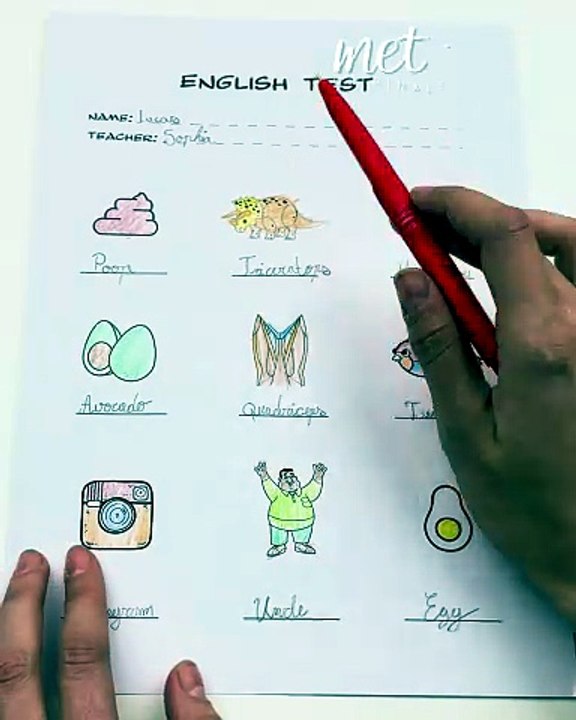 met
ENGLISH TEST
NAME: Lucas
TEACHER: Sophia
Poop Triceratops
Avocado Quadriceps
Uncle Egg